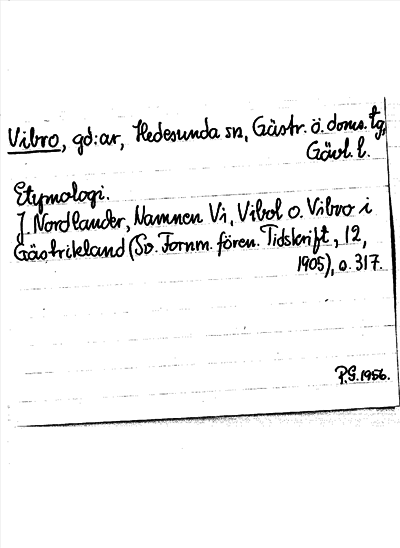 Vibro, gd:ar, Hedesunda sn, Gästr. ö. doms. tg,
Gävl. l.
Etymologi.
J. Nordlander, Namnen Vi, Vibol o. Vibro i
Gästrikland (Sv. Fornm. fören. Tidskrift, 12,
1905), s. 317.
P.G. 1956.